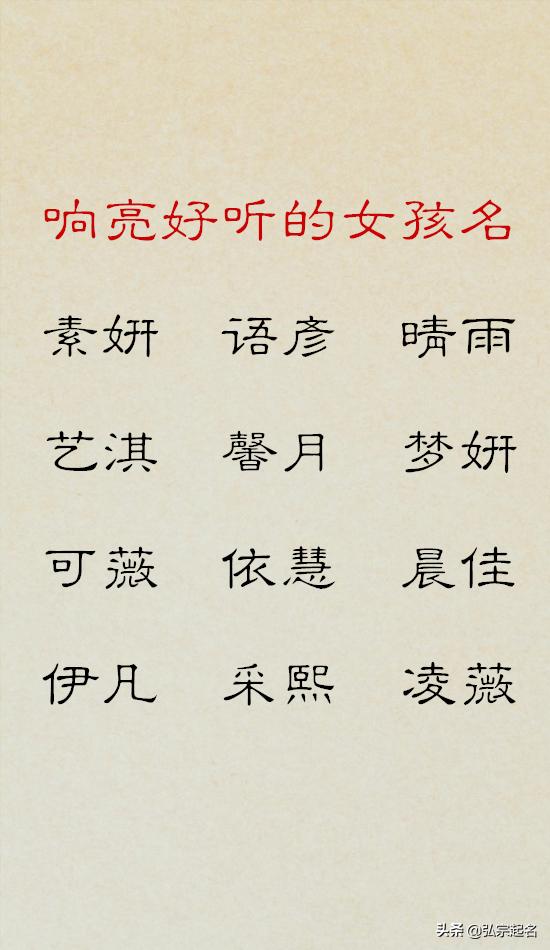 响亮好听的女孩名
素妍 语彦 晴雨
艺淇 馨月 梦妍
可薇 依慧 晨佳
伊凡 采熙 凌薇
头条 @弘宗起名